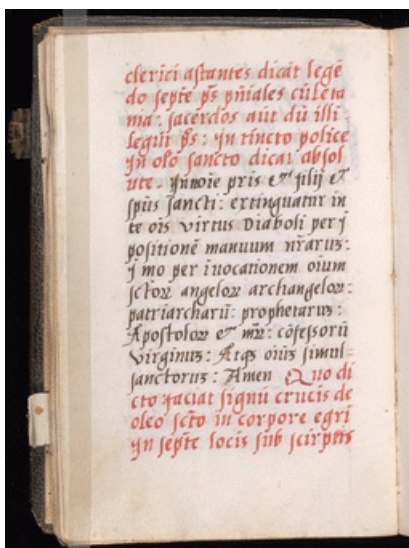 clerici astantes dicāt legē
do septē ps pn̄iales cū leta
nia: sacerdos aūt dū illi
legūt ps: yn tincto police
yn oĺo sancto dicat absol
ute. ynnoīe pris & filij &
spūs sancti: extinguatur in
te oīs virtus Diaboli per ī
positionē manuum nr̄arūꝫ:
ī mo per īuocationem oīum
sctoꝝ angeloꝝ archangeloꝝ:
patriarcharū: prophetarūꝫ:
Apostoloꝝ & mr̄ū: cōfessorū
virginūꝫ: Atqꝫ oīuꝫ simul
sanctorūꝫ: Amen Quo di
cto faciat signū crucis de
oleo scto in corpore egri
yn septē locis sub scriptis